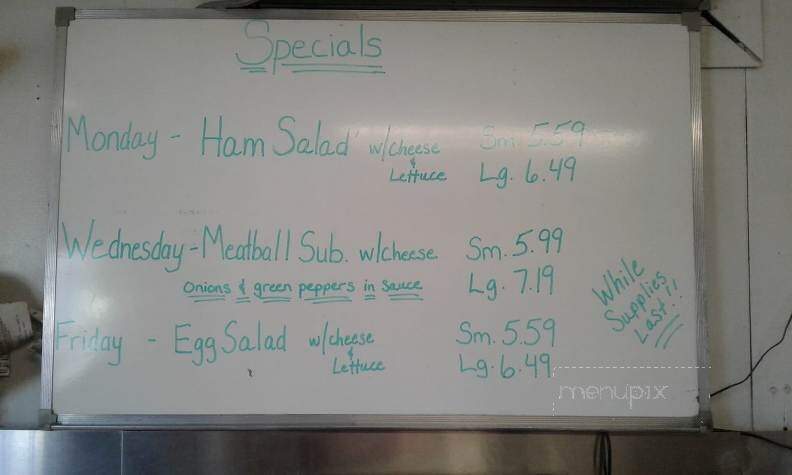 Specials
Monday - Ham Salad w/cheese Sm. 5.59
& Lettuce Lg. 6.49
Wednesday - Meatball Sub. w/cheese Sm. 5.99
Onions & green peppers in sauce Lg. 7.19
While Supplies Last!!
Friday - Egg Salad w/cheese Sm. 5.59
& Lettuce Lg. 6.49
menupix